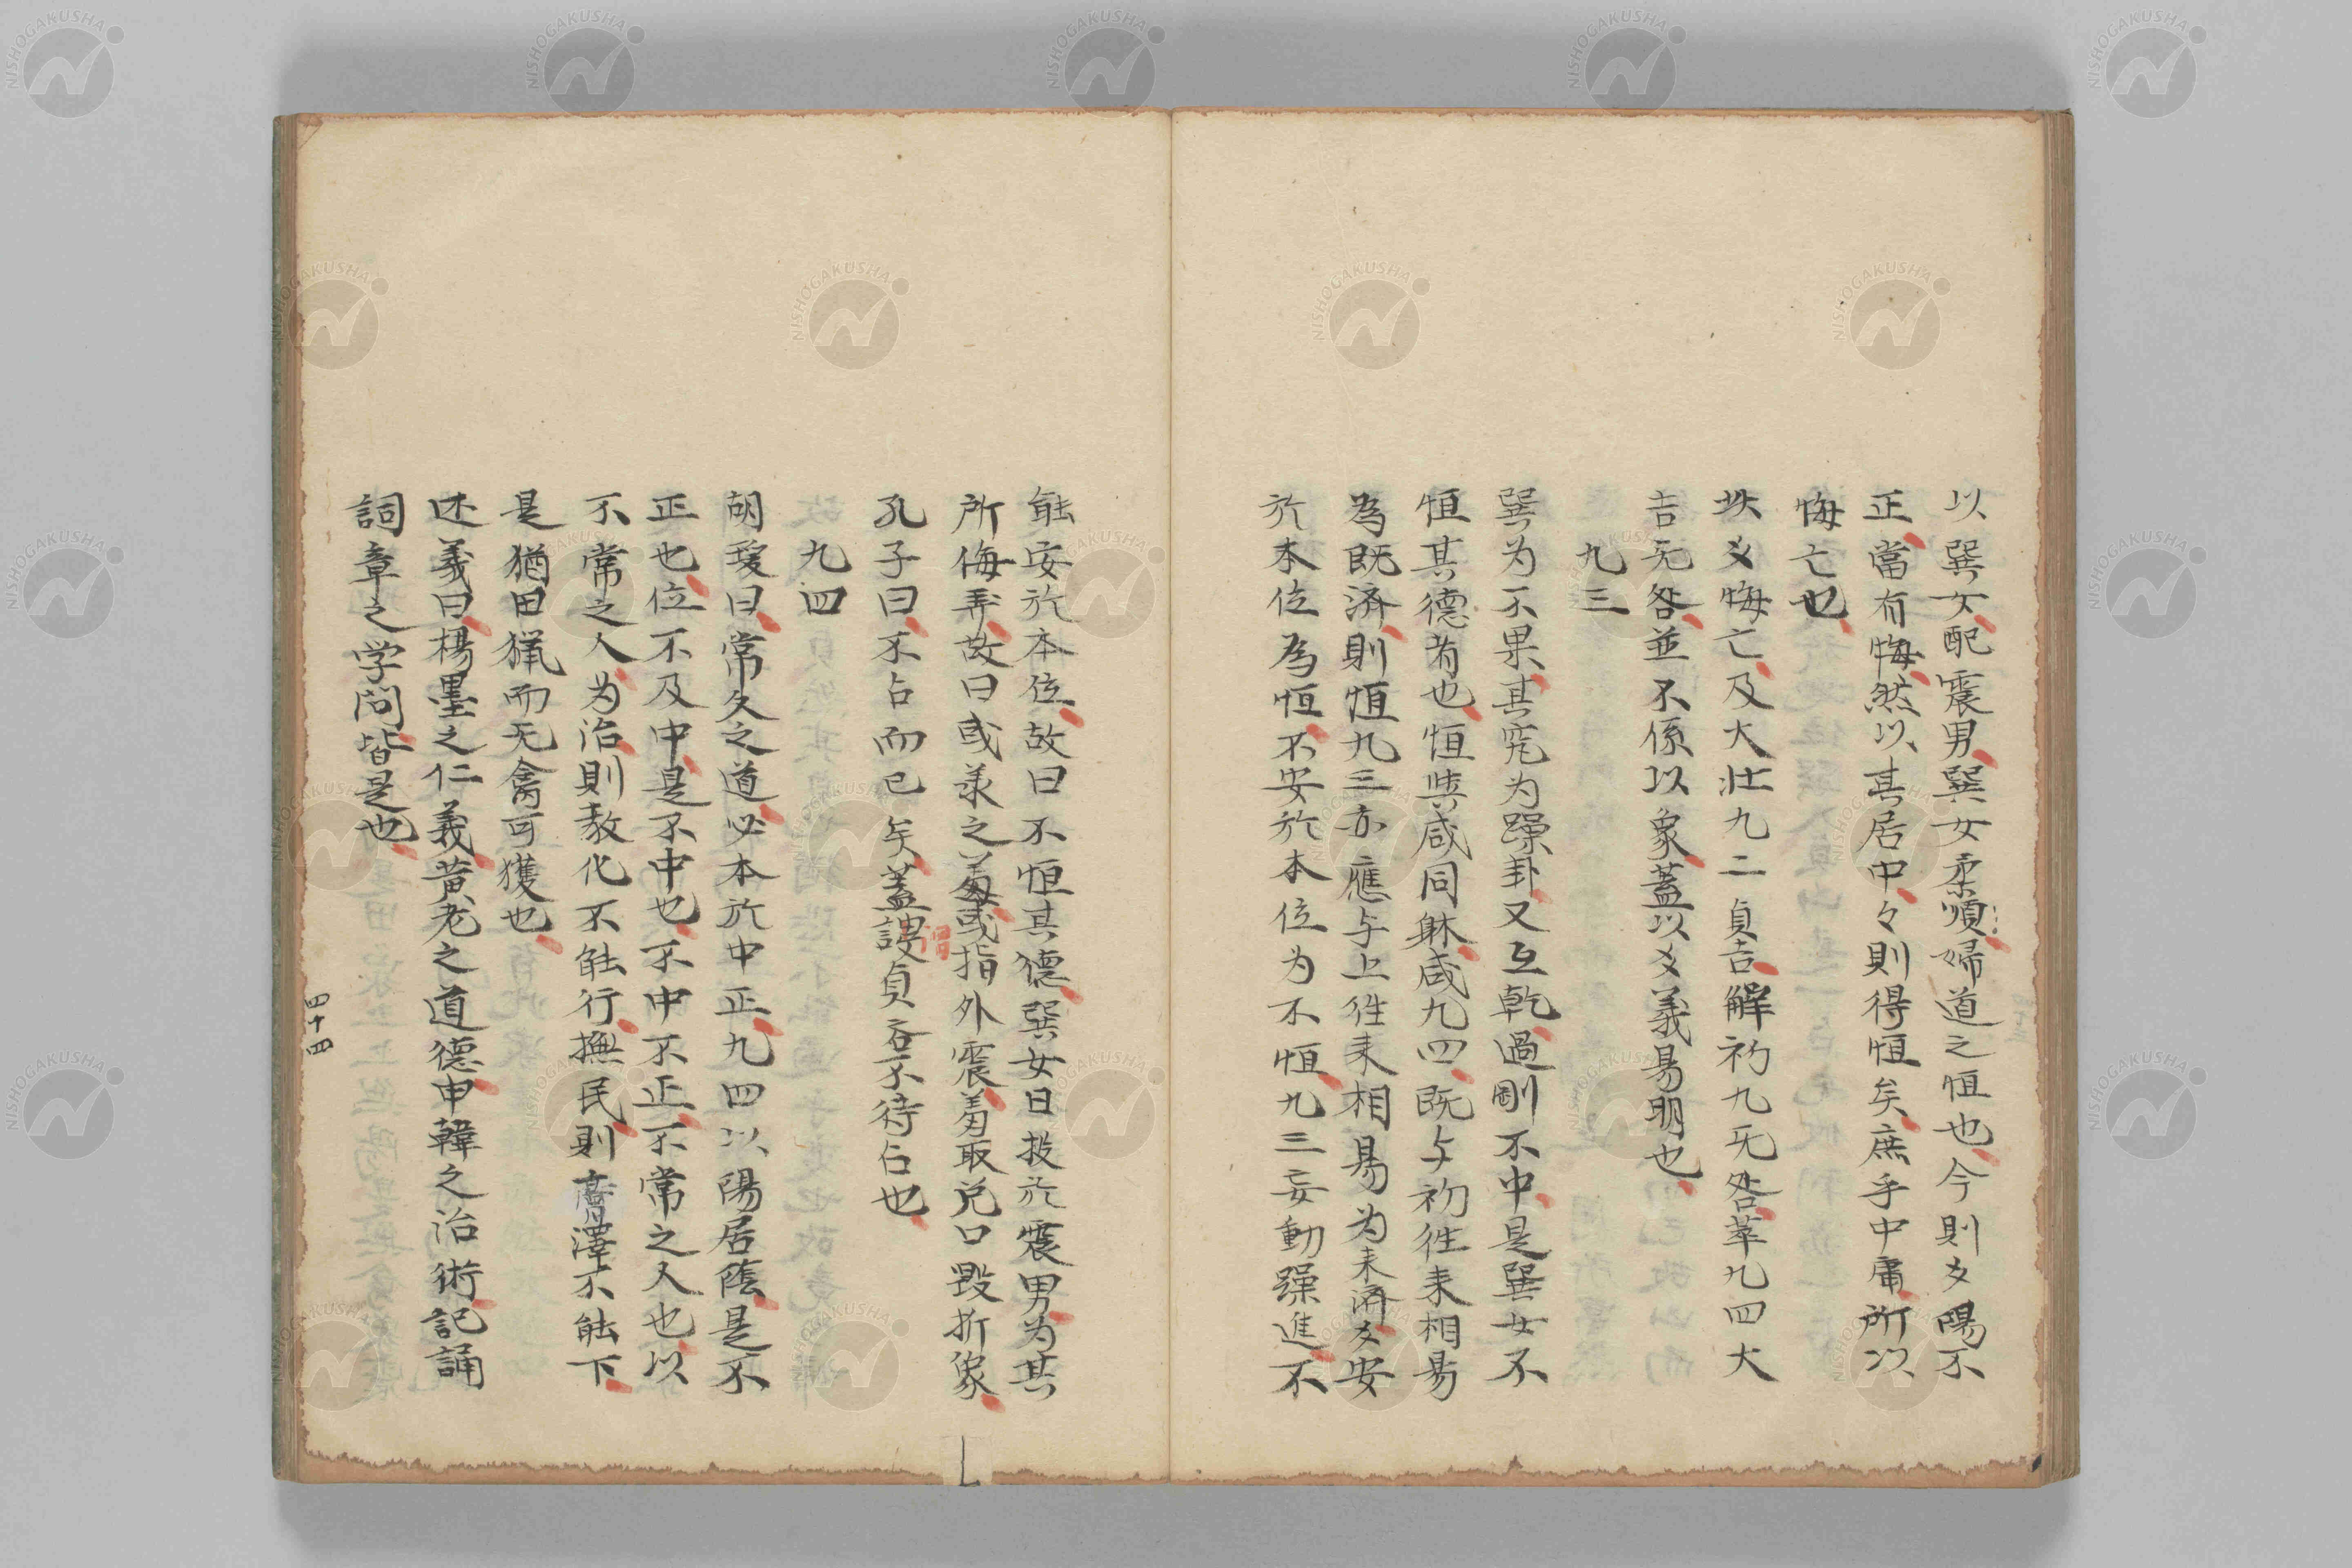 以巽女配震男巽女柔順婦道之恒也今則爻陽不
正當有悔然以其居中々則得恒矣庶乎中庸所以
悔亡也
此爻悔亡及大壮九二貞吉解初九旡咎萃九四大
吉旡咎並不係以象蓋以爻義易明也
九三
巽为不果其究为躁卦又互乾過剛不中是巽女不
恒其德者也恒與咸同躰咸九四既与初徃耒相易
為既済則恒九三亦應与上徃耒相易为未済爻安
於本位為恒不安於本位为不恒九三妄動躁進不
能安於本位故曰不恒其德巽女日投於震男为其
所侮弄故曰或承之羞或指外震羞取兌口毀折象
孔子曰不占而已矣蓋謂貞吝不待占也
九四
胡瑗曰常久之道必本於中正九四以陽居陰是不
正也位不及中是不中也不中不正不常之人也以
不常之人为治則教化不能行撫民則膏澤不能下
是猶田猟而无禽可獲也
述義曰楊墨之仁義黄老之道德申韓之治術記誦
詞章之学問皆是也
四十四
NISHOGAKUSHA